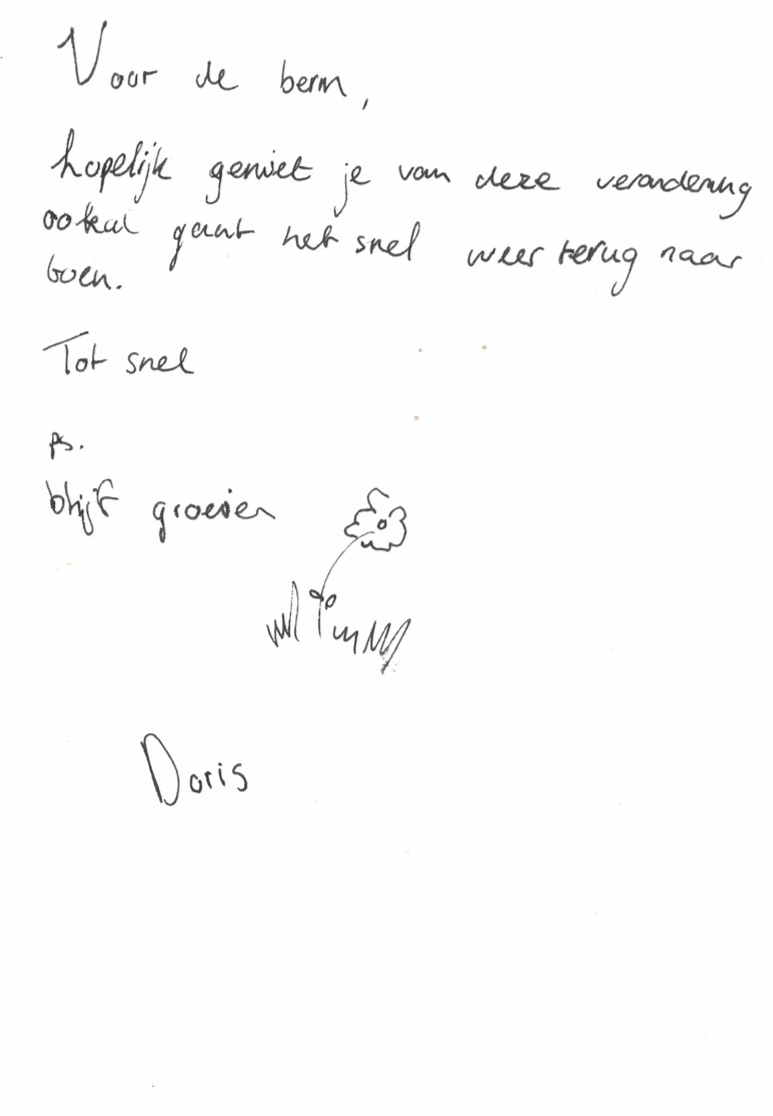 Voor de berm,
hopelijk geniet je van deze verandering
ookal gaat het snel weer terug naar
toen.
Tot snel
ps.
blijf groeien
Doris